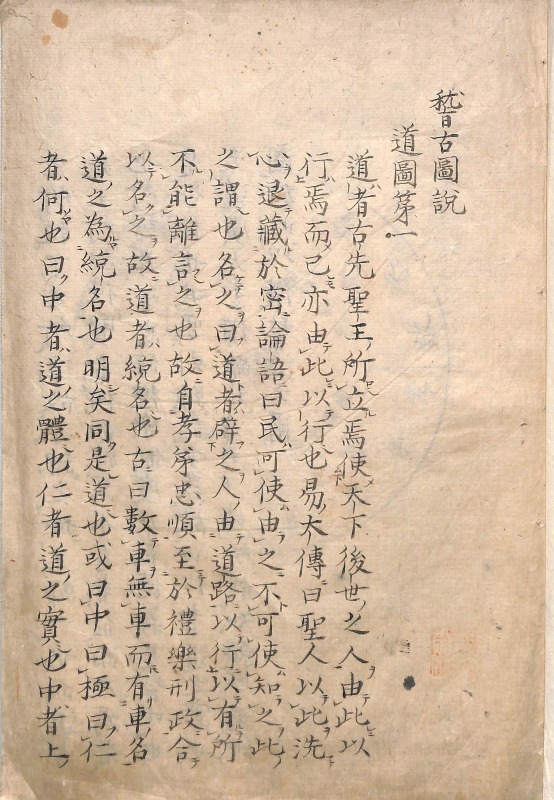 稽古圖説
道圖第一
道者古先聖王所立焉使天下後世之人由此以
行焉而己亦由此以行也易大傳曰聖人以此洗
心退藏於密論語曰民可使由之不可使知之此
之謂也名之曰道者辟之人由道路以行以有所
不能離言之也故自孝弟忠順至於禮樂刑政合
以名之故道者統名也古曰數車無車而有車名
道之為統名也明矣同是道也或曰中曰極曰仁
者何也曰中者道之體也仁者道之實也中者上